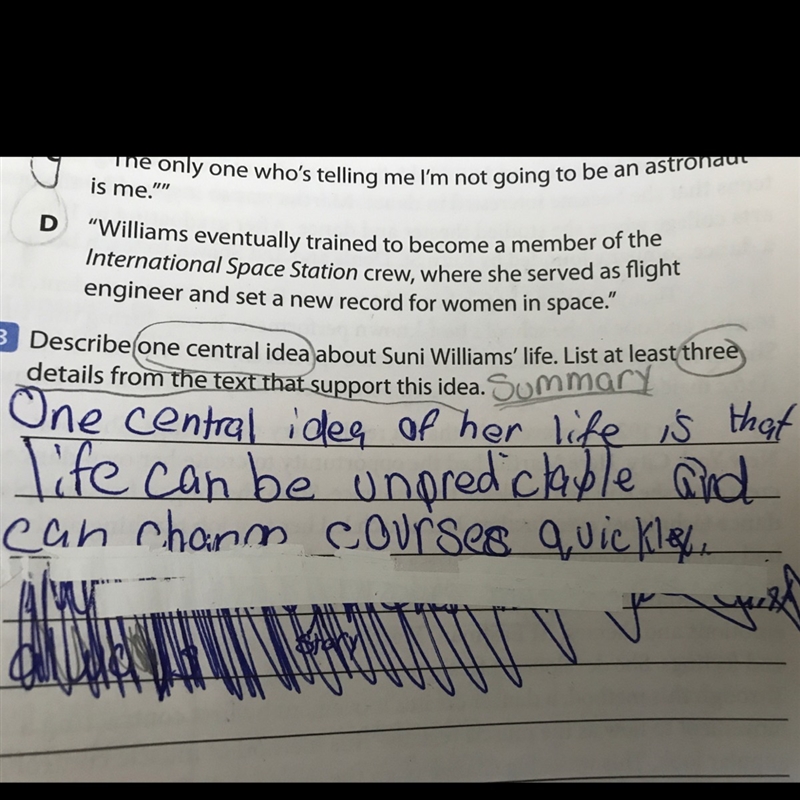 The only one who's telling me I'm not going to be an astronaut
is me.""
D "Williams eventually trained to become a member of the
International Space Station crew, where she served as flight
engineer and set a new record for women in space."
3 Describe one central idea about Suni Williams' life. List at least three
details from the text that support this idea. Summary
One central idea of her life is that
life can be unpredictable and
can courses quickly.
story